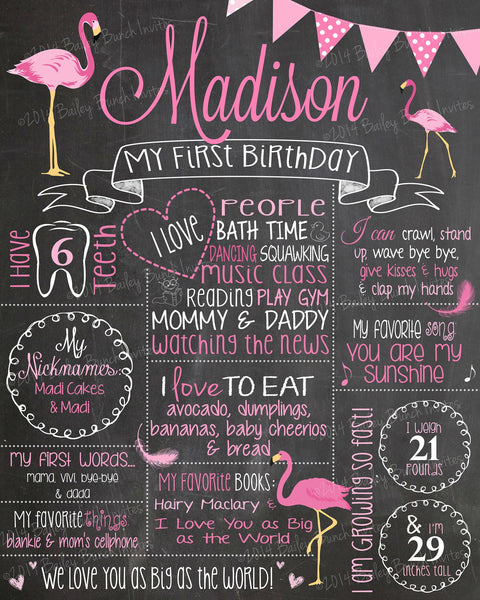 Madison
My First Birthday
I HAVE
6
TEETH
I LOVE
PEOPLE
BATH TIME &
DANCING SQUAWKING
music class
Reading PLAY GYM
MOMMY & DADDY
watching the news
I can crawl, stand
up wave bye bye,
give kisses & hugs
& clap my hands
My favorite song:
You are my
sunshine
My
Nicknames:
Madi Cakes
& Madi
I love TO EAT
avocado, dumplings,
bananas, baby cheerios
& bread
My first words...
mama, vivi, bye-bye
& dada
My favorite things:
blankie & mom's cellphone
My Favorite Books:
Hairy Maclary &
I Love You as Big
as the World
I AM GROWING SO FAST!
I WEIGH
21
POUNDS
& I'M
29
INCHES TALL
We love You as Big as the World!
©2014 Bailey Bunch Invites